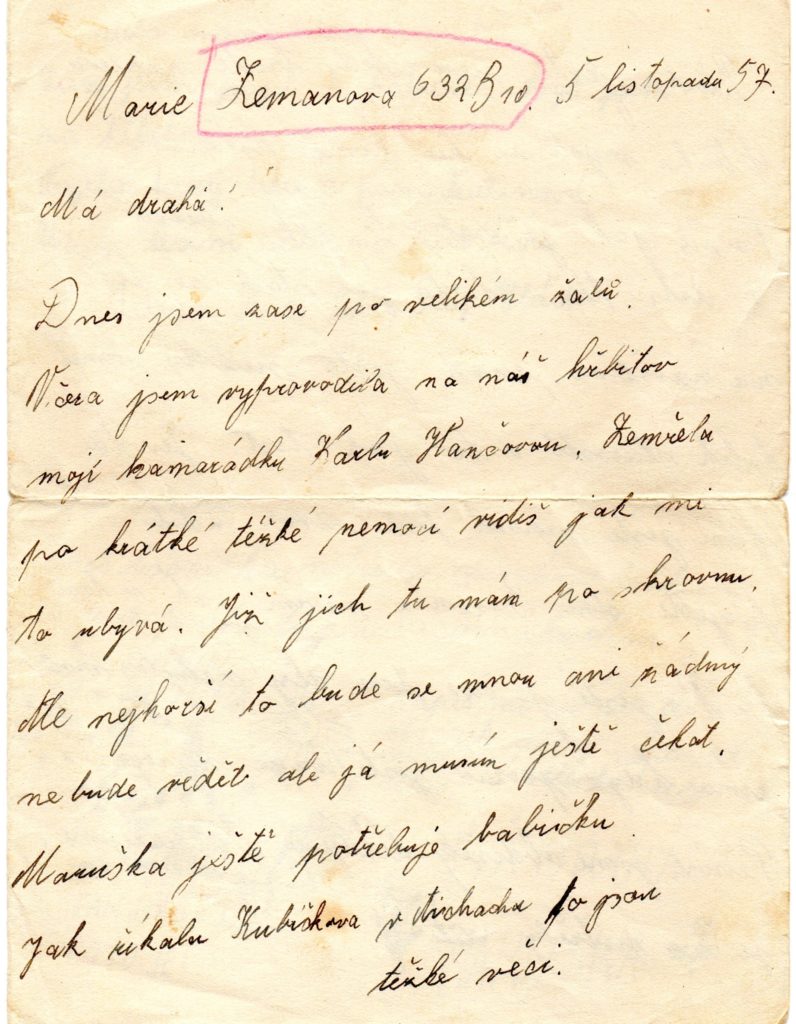 Marie Zemanova 632 B 10. 5 listopadu 57.
Má drahá!
Dnes jsem zase po velikém žalů.
Včera jsem vyprovodila na náš hřbitov
mojí kamarádku Karlu Hančovou. Zemřela
po krátké těžké nemocí vidiš jak mi
to ubyvá. Již jich tu mám po skrovnu.
Ale nejhorší to bude se mnou ani žádmý
nebude vědět ale já musím ještě čekat.
Maruška ještě potřebuje babičku.
Jak řikalu Kubiškova v to jsou
těžké věci.